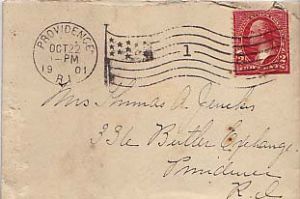 PROVIDENCE
OCT 22
-PM
1901
R.I.
1
2 2
TWO CENTS
Mrs Thomas A. Jencks
336 Butler Exchange
Providence
R.I.